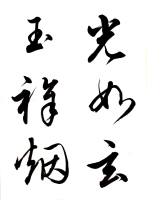 光如玄
玉祥烟